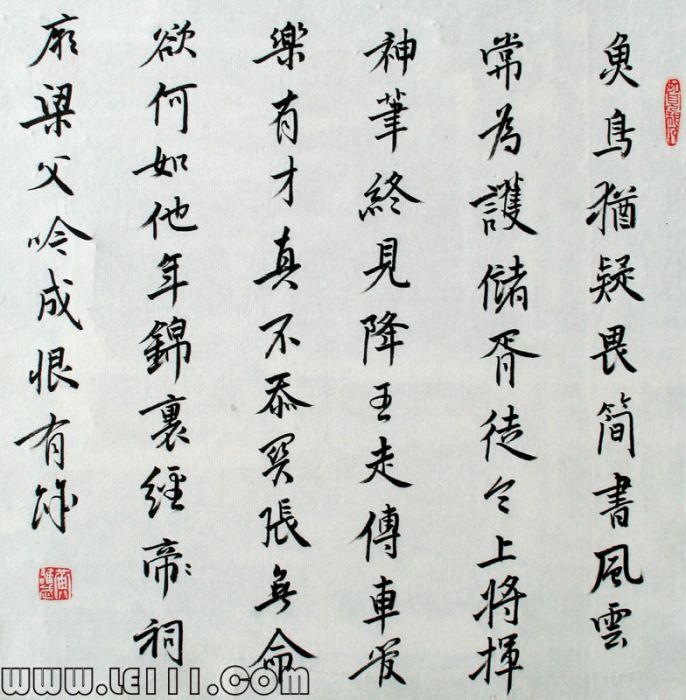 魚鳥猶疑畏簡書風雲
常為護儲胥徒令上將揮
神筆終見降王走傳車管
樂有才真不忝関張無命
欲何如他年錦裏經帝祠
廟梁父吟成恨有餘